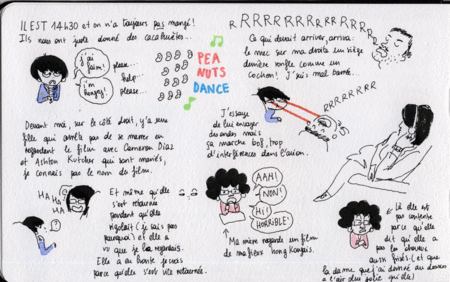 IL EST 14h30 et on n'a toujours pas mangé!
Ils nous ont juste donné des cacahuètes...
j'ai
faim!
please...
i'm
hungry!
help...
please...
PEA
NUTS
DANCE
RRRRRRRRRRRRR
Ce qui devait arriver arriva:
le mec sur ma droite un siège
derrière ronfle comme un
cochon! J'suis mal barré...
J'essaye
de lui envoyer
des ondes mais
ça marche bof, trop
d'interférence dans l'avion.
RRRRRRR
Devant moi, sur le côté droit, y'a une
fille qui arrête pas de se marrer en
regardant le film avec Cameron Diaz
et Ashton Kutcher qui sont mariés,
je connais pas le nom du film.
HA
HA
HA
HA
?
Et même qu'elle
s'est retournée
pendant qu'elle
rigolait (je sais pas
pourquoi) et elle a
vu que je la regardais.
Elle a eu honte je crois
parce qu'elle s'est vite retournée.
AAH!
NON!
HI!
HORRIBLE!
Ma mère regarde un film
de mafieux hong kongais.
Là elle est
pas contente
parce qu'elle
dit qu'elle a
pas les cheveux
aussi frisés (et que
la dame que j'ai dessiné au dessus
a l'air plus jolie qu'elle)